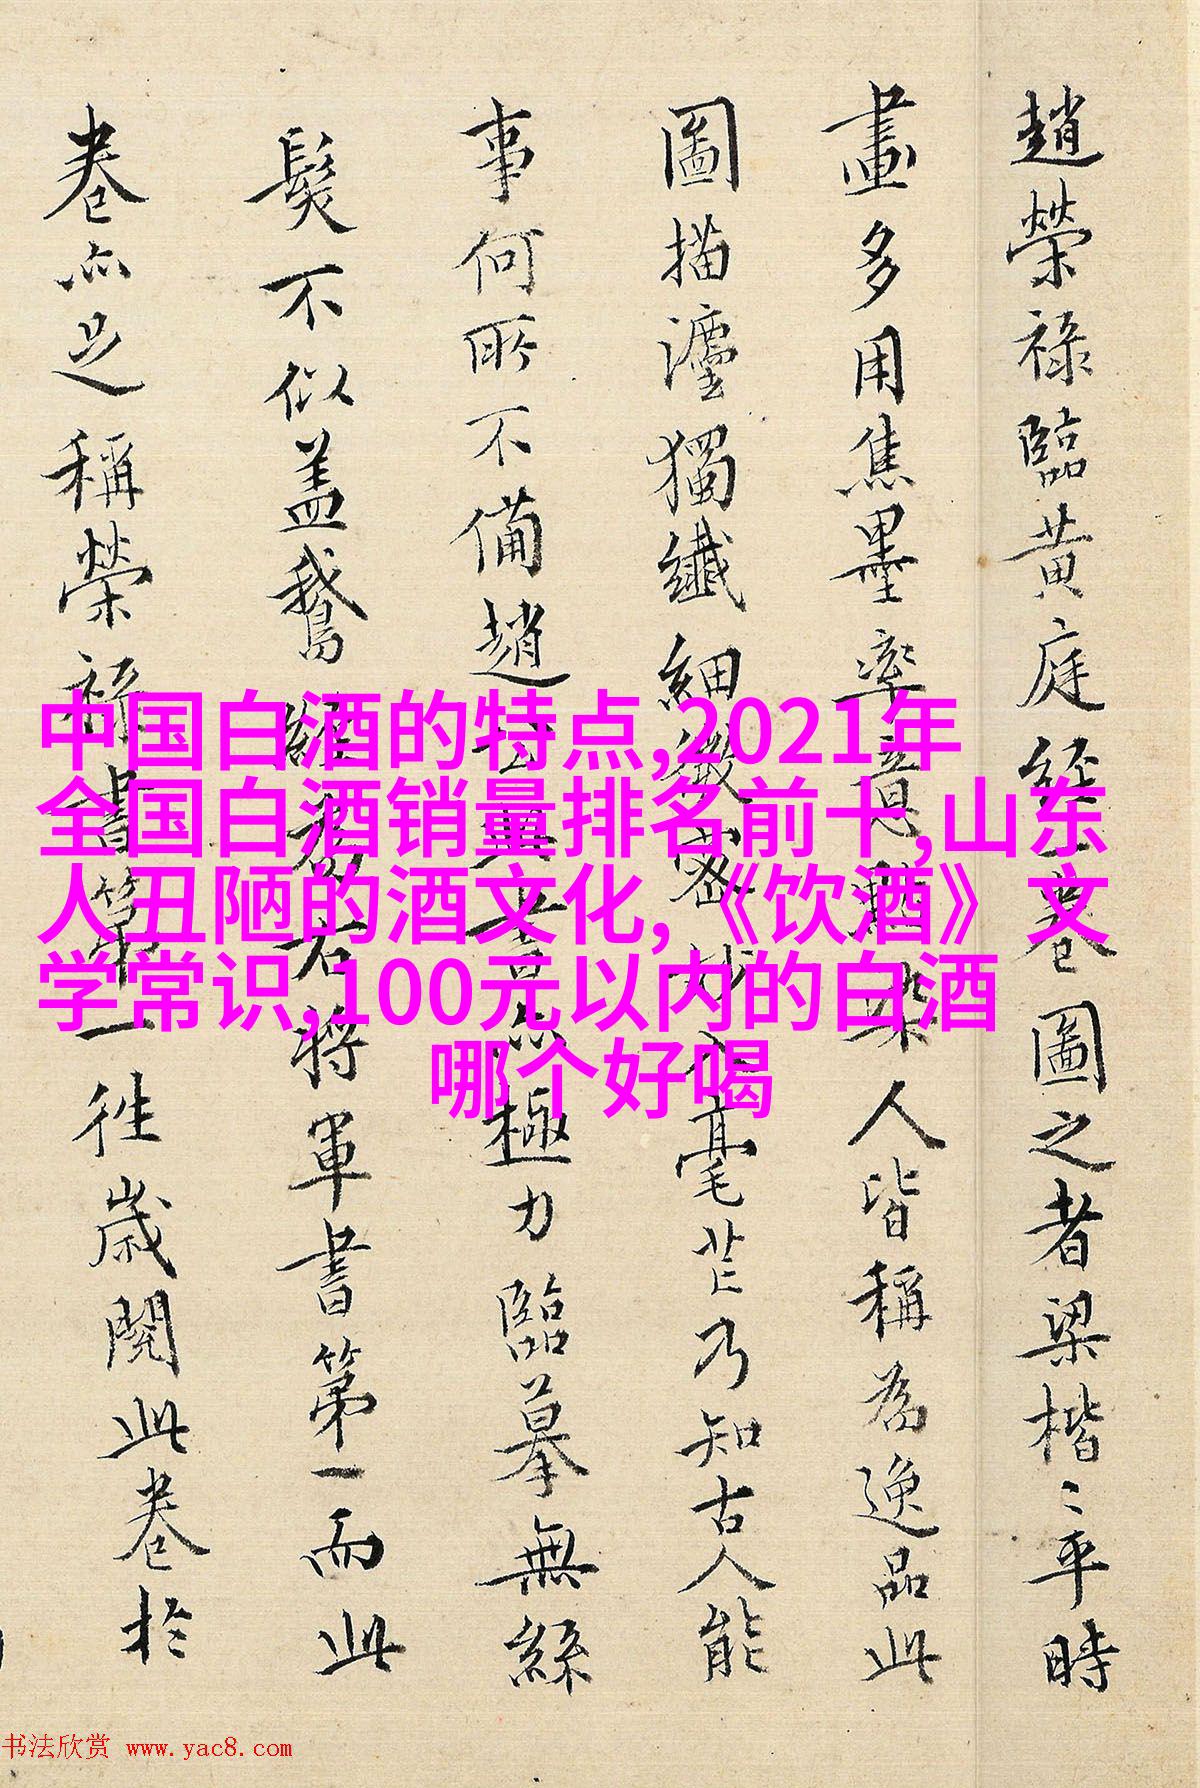 趙榮祿臨黃庭經卷圖之者梁楷〻平時
畫多用焦墨率意點染人皆稱為逸品此
圖描瀍獨纖細緻密妙入毫芒乃知古人能
事何所不備趙
極力臨摹無絲
髮不似蓋鵝經為右將軍書第一而此
卷亦足稱榮祿書第一往歲閱此卷於
中国白酒的特点,2021年
全国白酒销量排名前十,山东
人丑陋的酒文化,《饮酒》文
学常识,100元以内的白酒
哪个好喝
书法欣赏 www.yac8.com